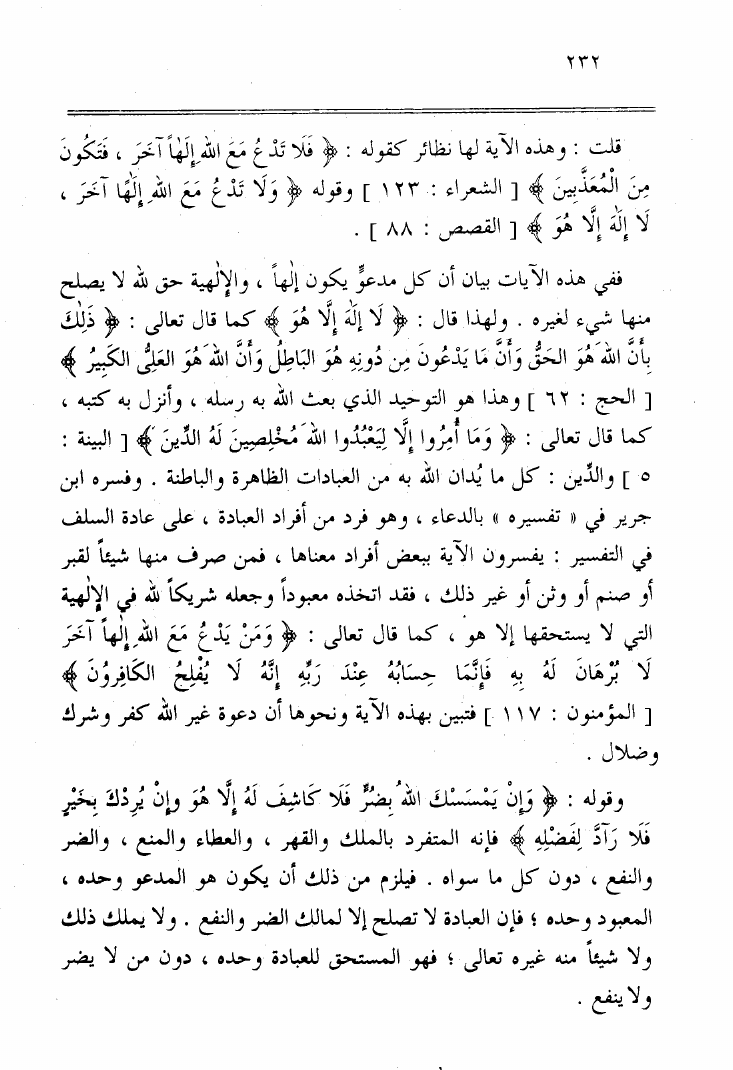 ٢٣٢
قلت : وهذه الآية لها نظائر كقوله : ﴿ فَلَا تَدْعُ مَعَ اللهِ إِلَهاً آخَرَ ، فَتَكُونَ
مِنَ الْمُعَذَّبِينَ ﴾ [ الشعراء : ١٢٣ ] وقوله ﴿ وَلَا تَدْعُ مَعَ اللهِ إِلَهًا آخَرَ ،
لَا إِلَهَ إِلَّا هُوَ ﴾ [ القصص : ٨٨ ] .
ففي هذه الآيات بيان أن كل مدعوٍّ يكون إلهاً ، والإلهية حق لله لا يصلح
منها شيء لغيره . ولهذا قال : ﴿ لَا إِلَهَ إِلَّا هُوَ ﴾ كما قال تعالى : ﴿ ذَلِكَ
بِأَنَّ اللهَ هُوَ الحَقُّ وَأَنَّ مَا يَدْعُونَ مِن دُونِهِ هُوَ البَاطِلُ وَأَنَّ اللهَ هُوَ العَلِيُّ الكَبِيرُ ﴾
[ الحج : ٦٢ ] وهذا هو التوحيد الذي بعث الله به رسله ، وأنزل به كتبه ،
كما قال تعالى : ﴿ وَمَا أُمِرُوا إِلَّا لِيَعْبُدُوا اللهَ مُخْلِصِينَ لَهُ الدِّينَ ﴾ [ البينة :
٥ ] والدِّين : كل ما يُدان الله به من العبادات الظاهرة والباطنة . وفسره ابن
جرير في « تفسيره » بالدعاء ، وهو فرد من أفراد العبادة ، على عادة السلف
في التفسير : يفسرون الآية ببعض أفراد معناها ، فمن صرف منها شيئاً لقبر
أو صنم أو وثن أو غير ذلك ، فقد اتخذه معبوداً وجعله شريكاً لله في الإلهية
التي لا يستحقها إلا هو ، كما قال تعالى : ﴿ وَمَنْ يَدْعُ مَعَ اللهِ إِلَهاً آخَرَ
لَا بُرْهَانَ لَهُ بِهِ فَإِنَّمَا حِسَابُهُ عِنْدَ رَبِّهِ إِنَّهُ لَا يُفْلِحُ الكَافِرُونَ ﴾
[ المؤمنون : ١١٧ ] فتبين بهذه الآية ونحوها أن دعوة غير الله كفر وشرك
وضلال .
وقوله : ﴿ وَإِنْ يَمْسَسْكَ اللهُ بِضُرٍّ فَلَا كَاشِفَ لَهُ إِلَّا هُوَ وإِنْ يُرِدْكَ بِخَيْرٍ
فَلَا رَآدَّ لِفَضْلِهِ ﴾ فإنه المتفرد بالملك والقهر ، والعطاء والمنع ، والضر
والنفع ، دون كل ما سواه . فيلزم من ذلك أن يكون هو المدعو وحده ،
المعبود وحده ؛ فإن العبادة لا تصلح إلا لمالك الضر والنفع . ولا يملك ذلك
ولا شيئاً منه غيره تعالى ؛ فهو المستحق للعبادة وحده ، دون من لا يضر
ولا ينفع .